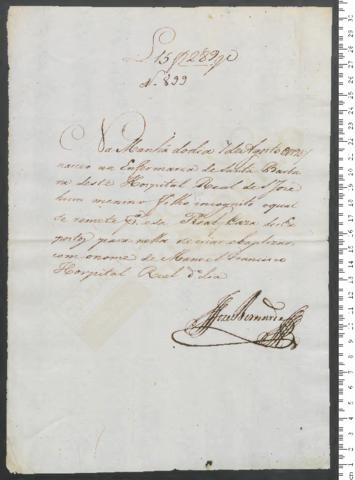 L 15 f 289
N. 899
Na Manhã do dia 7 de Agosto
nasceo na Enfermaria de Santa Barba
ra deste Hospital Real de S Joze
hum menino filho incognito o qual
se remete p.ª esta Real Caza dos Ex
postos para nella se criar e baptizar
com o nome de Manoel Francisco
Hospital Real